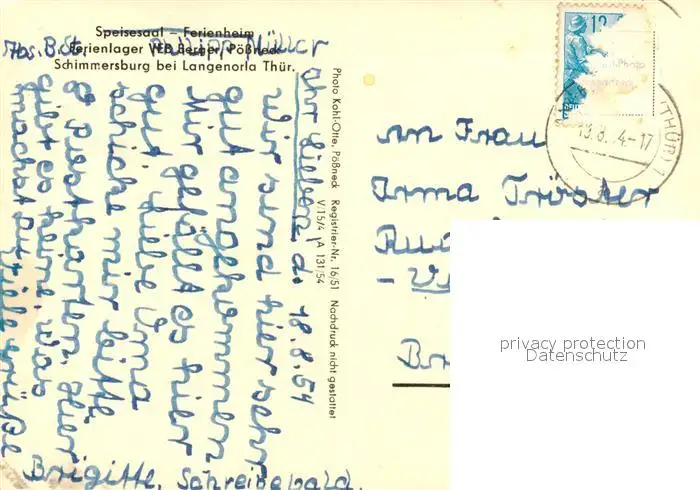 Speisesaal - Ferienheim
Ferienlager VEB Berger, Pößneck
Schimmersburg bei Langenorla Thür.
Abs. B. St. Philipp-Müller
d. 18.8.54
Ihr Lieben!
wir sind hier sehr
gut angekommen
Mir gefällt es hier
gut. Liebe Oma
schicke mir bitte
8 Postkarten. Hier
gibt es keine. was
machst
viele Grüße
Brigitte, Schreibe bald.
Photo Kohl-Otte, Pößneck Registrier-Nr. 16/51 Nachdruck nicht gestattet
V/15/4 A 131/54
12
19.8.54-17
(THÜR) 1
An Frau
Irma Tröster
privacy protection
Datenschutz